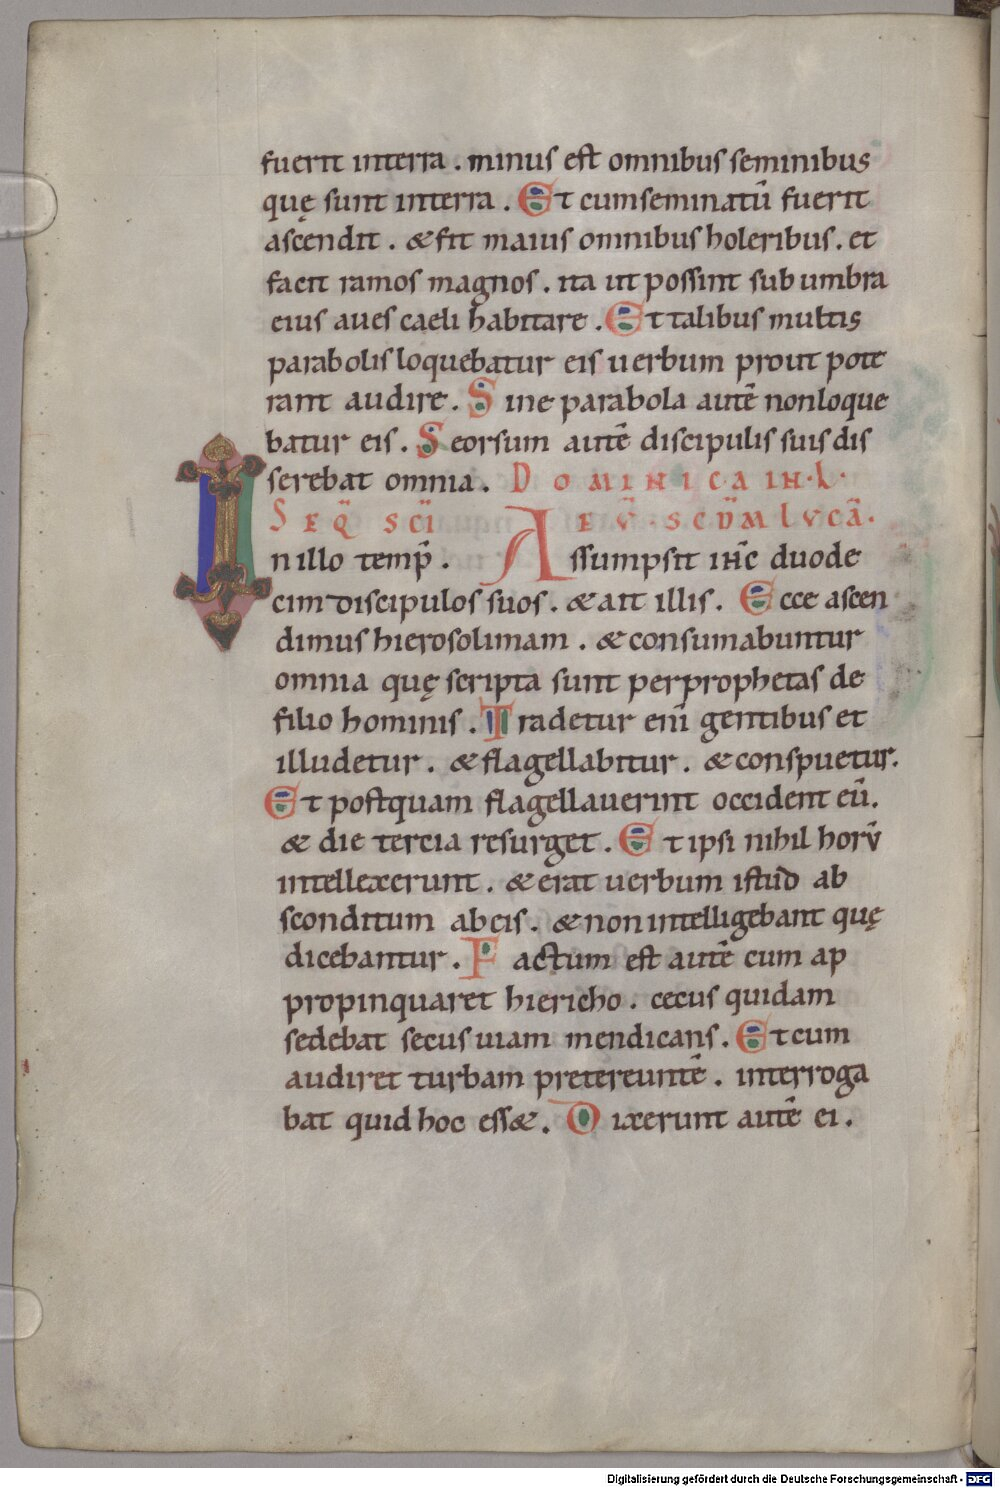 fuerit interra . minus est omnibus seminibus
quę sunt interra . Et cum seminatū fuerit
ascendit . & fit maius omnibus holeribus . et
facit ramos magnos . ita ut possint sub umbra
eius aues caeli habitare . Et talibus multis
parabolis loquebatur eis uerbum prout pote
rant audire . Sine parabola autē non loque
batur eis . Seorsum autē discipulis suis dis
serebat omnia . DOMINICA IN . L .
SEQ̄ SC̄I EṼ . SCD̄M LVCĀ .
In illo temp̄ . Assumpsit ihc̄ duode
cim discipulos suos . & ait illis . Ecce ascen
dimus hierosolimam . & consumabuntur
omnia quę scripta sunt per prophetas de
filio hominis . Tradetur eni̅ gentibus et
illudetur . & flagellabitur . & conspuetur .
Et postquam flagellauerint occident eū .
& die tercia resurget . Et ipsi nihil horv̄
intellexerunt . & erat uerbum istud ab
sconditum ab eis . & non intelligebant quę
dicebantur . Factum est autē cum ap
propinquaret hiericho . cecus quidam
sedebat secus uiam mendicans . Et cum
audiret turbam pretereuntē . interroga
bat quid hoc ess& . Dixerunt autē ei .
Digitalisierung gefördert durch die Deutsche Forschungsgemeinschaft - DFG